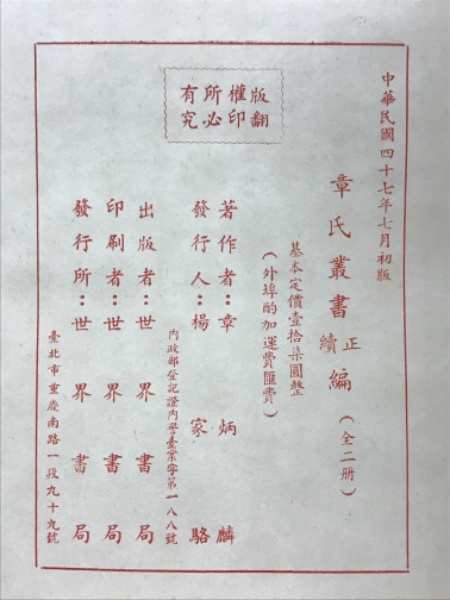 中華民國四十七年七月初版
章氏叢書正續編(全二册)
基本定價壹拾柒圓整
(外埠酌加運費匯費)
版權所有
翻印必究
著作者:章炳麟
發行人:楊家駱
內政部登記證內警臺業字第一八八號
出版者:世界書局
印刷者:世界書局
發行所:世界書局
臺北市重慶南路一段九十九號